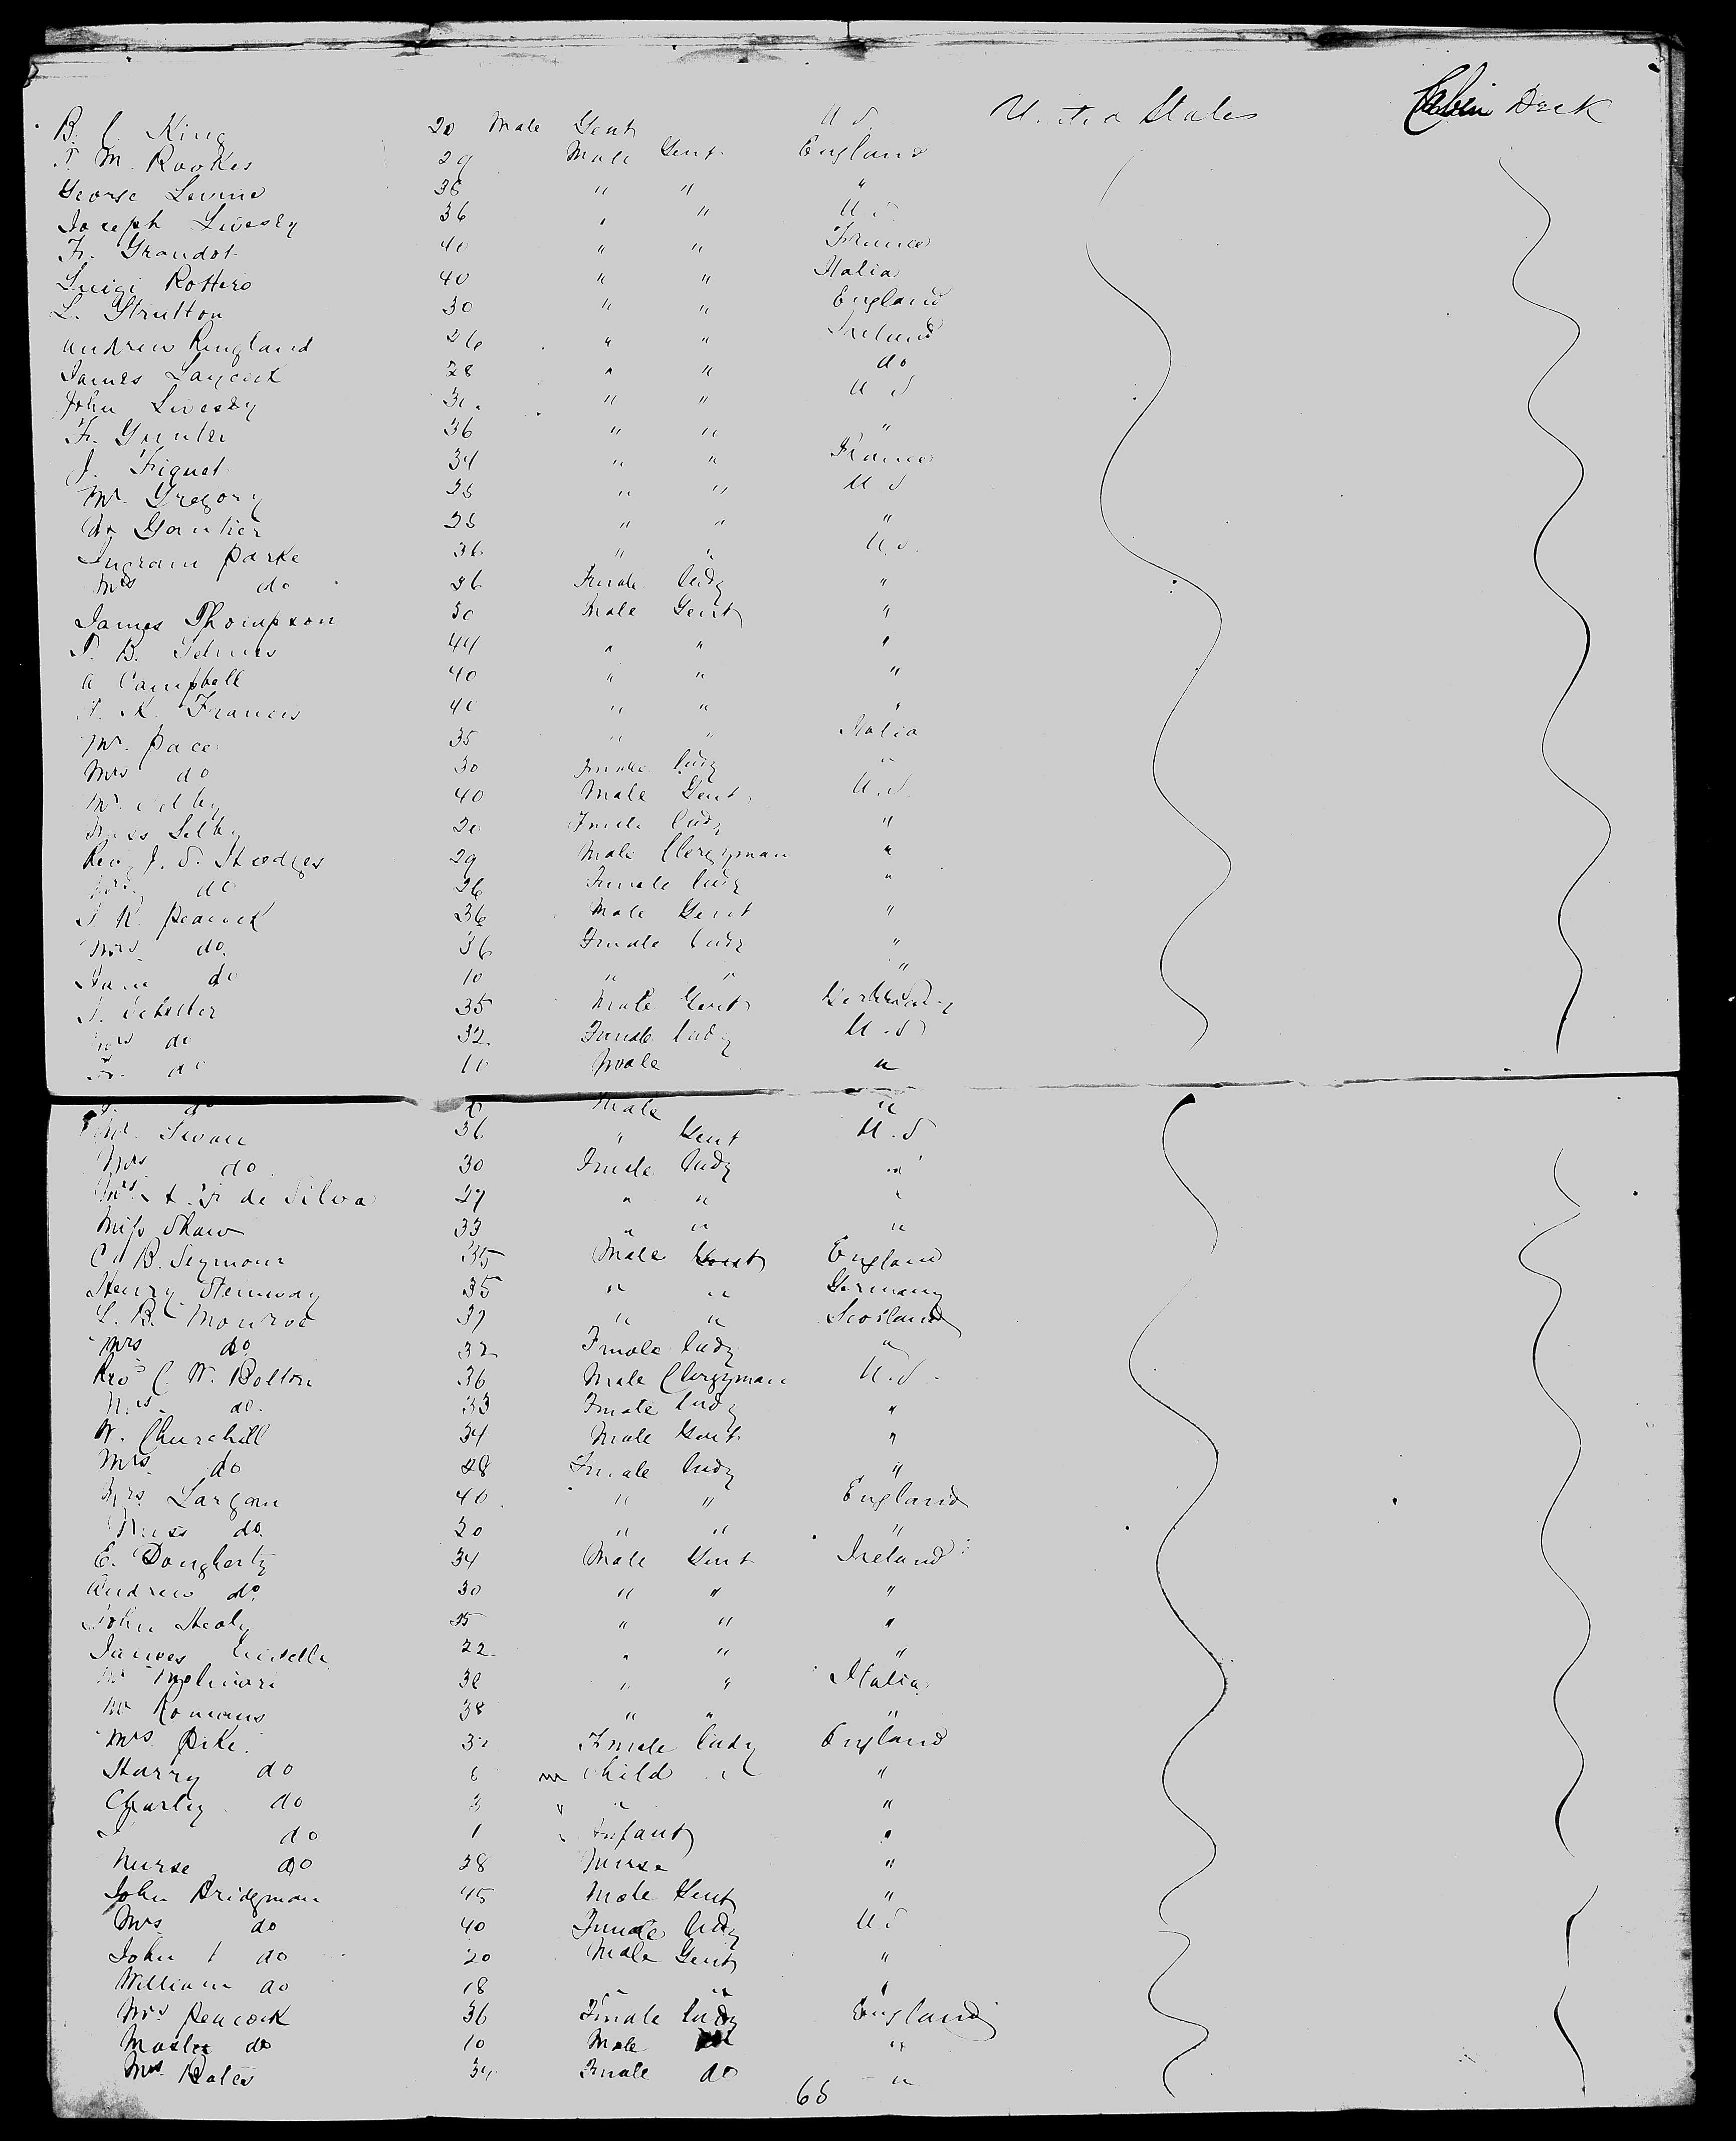 B. C. King 20 Male Gent U S. United States Cabin Deck
T. M. Rookes 29 Male Gent. England
George Levine 38 " " "
Joseph Livesey 36 " " U S
Fr. Grandot 40 " " France
Luigi Rottero 40 " " Italia
L. Strutton 30 " " England
Andrew Ringland 26 " " Ireland
James Laycock 28 " " do
John Livesey 30. " " U S
Fr. Gunter 36 " " "
J. Friquet 34 " " France
Mr. Gregory 28 " " U S
Mr Gautier 28 " " "
Ingram Parke 36 " " U.S.
Mrs do 36 Female lady "
James Thompson 50 Male Gent "
T. B. 44 " " "
A Campbell 40 " " "
T. K. Francis 40 " " "
Mr. Pace 35 " " Italia
Mrs do 30 Female lady "
Mr. Selby 40 Male Gent U.S.
Miss Selby 20 Female lady "
Rev J. S. Hodges 29 Male Clergyman "
Mrs do 26 Female lady "
T R Peacock 36 Male Gent "
Mrs. do. 36 Female lady "
do 10 " " "
35 Male Gent Germany
Mrs do 32. Female lady U.S
Fr. do 10 Male "
do Male "
Mr. Swan 36 " Gent U.S
Mrs do. 30 Female lady "
Mrs. A. Fr de Silva 27 " " "
Miss Shaw 33 " " "
C B. Seymour 35 Male Gent England
Henry Steinway 35 " " Germany
L. B. Monroe 37 " " Scotland
Mrs do. 32 Female lady "
Revd C. W. Bolton 36 Male Clergyman U.S.
Mrs. do. 33 Female lady "
W. Churchill 34 Male Gent "
Mrs do 28 Female lady "
Mrs. 40. " " England
Miss do. 20 " " "
E. Dougherty 34 Male Gent Ireland
Andrew do. 30 " " "
John Healy 25 " " "
James 22 " " "
Mr Molinari 30 " " Italia
Mr Romans 38 " " "
Mrs. Pike. 32 Female lady England
Harry do 6 m Child "
Charley do 3 " " "
do 1 " Infant "
Nurse do 28 Nurse "
John Bridgman 45 Male Gent "
Mrs. do 40 Female lady U.S
John do 20 Male Gent "
William do 18 " " "
Mrs Peacock 36 Female lady England
Master do 10 Male "
Mrs. Bates 34 Female do "
65